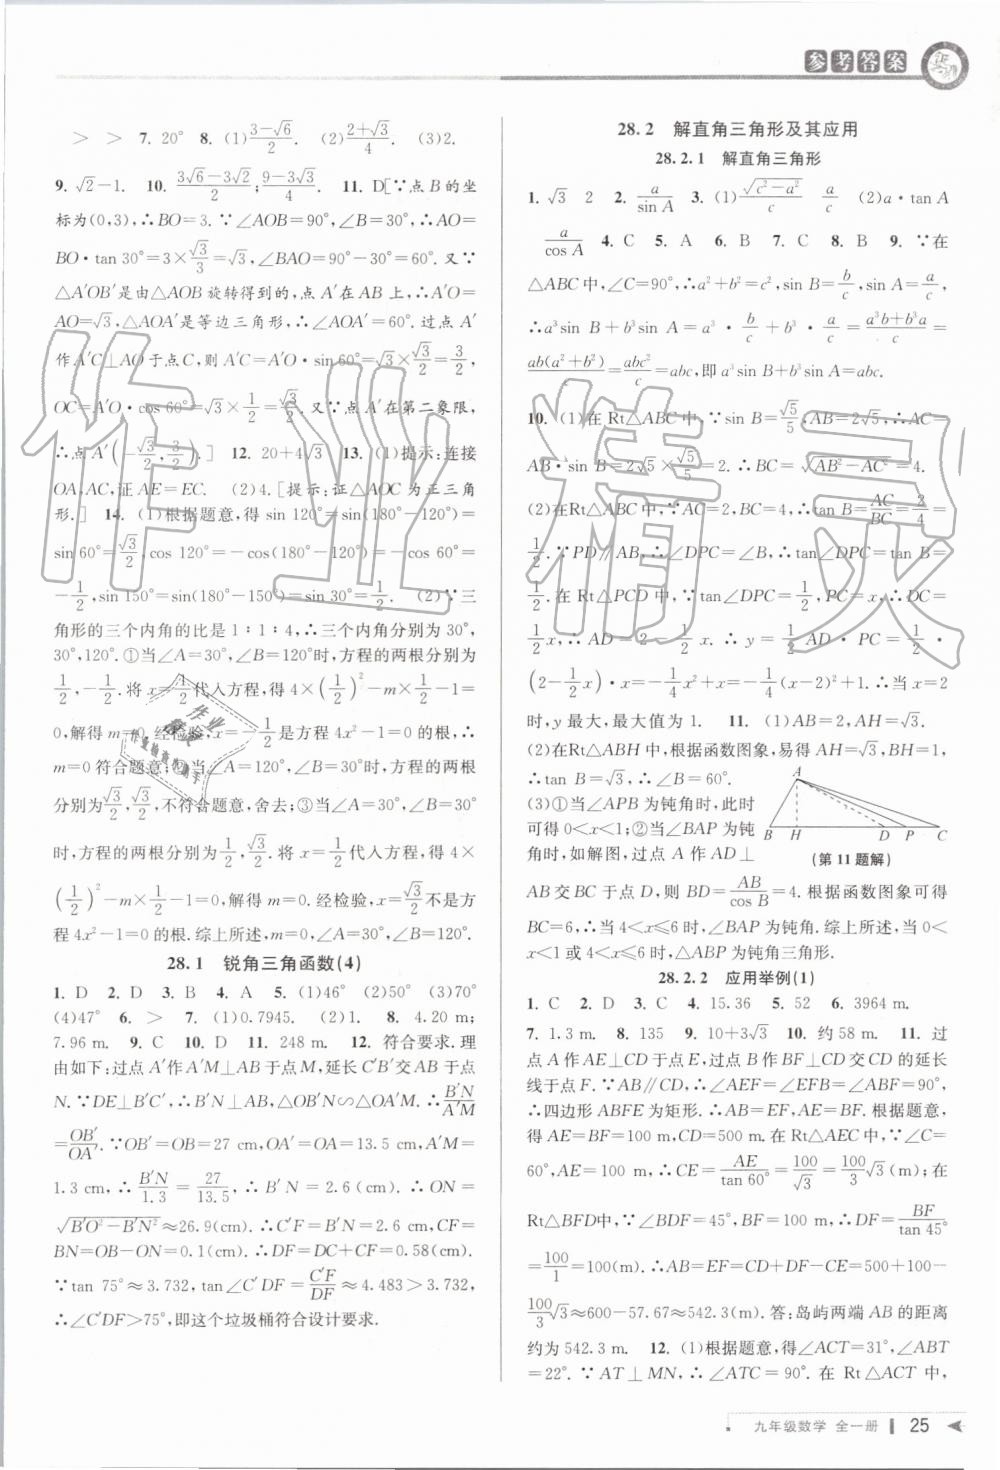 参考答案
＞ ＞ 7. 20° 8. (1)(3−√6)/2. (2)(2+√3)/4. (3)2.
9. √2−1. 10. (3√6−3√2)/2;(9−3√3)/4. 11. D[∵点 B 的坐
标为(0,3),∴BO=3. ∵∠AOB=90°,∠B=30°,∴AO=
BO·tan 30°=3×√3/3=√3,∠BAO=90°−30°=60°. 又∵
△A′OB′是由△AOB 旋转得到的,点 A′在 AB 上,∴A′O=
AO=√3,△AOA′是等边三角形,∴∠AOA′=60°. 过点 A′
作 A′C⊥AO于点C,则 A′C=A′O·sin 60°=√3×√3/2=3/2,
OC=A′O·cos 60°=√3×1/2=√3/2. 又∵点 A′在第二象限,
∴点 A′(−√3/2,3/2).] 12. 20+4√3 13. (1)提示:连接
OA,AC,证 AE=EC. (2)4.[提示:证△AOC 为正三角
形.] 14. (1)根据题意,得 sin 120°=sin(180°−120°)=
sin 60°=√3/2,cos 120°=−cos(180°−120°)=−cos 60°=
−1/2,sin 150°=sin(180°−150°)=sin 30°=1/2. (2)∵三
角形的三个内角的比是 1∶1∶4,∴三个内角分别为 30°,
30°,120°. ①当∠A=30°,∠B=120°时,方程的两根分别为
1/2,−1/2. 将 x=1/2代入方程,得 4×(1/2)²−m×1/2−1=
0,解得 m=0. 经检验,x=−1/2是方程 4x²−1=0 的根,∴
m=0 符合题意;②当∠A=120°,∠B=30°时,方程的两根
分别为√3/2,√3/2,不符合题意,舍去;③当∠A=30°,∠B=30°
时,方程的两根分别为1/2,√3/2. 将 x=1/2代入方程,得 4×
(1/2)²−m×1/2−1=0,解得 m=0. 经检验,x=√3/2不是方
程 4x²−1=0 的根. 综上所述,m=0,∠A=30°,∠B=120°.
28.1 锐角三角函数(4)
1. D 2. D 3. B 4. A 5. (1)46° (2)50° (3)70°
(4)47° 6. ＞ 7. (1)0.7945. (2)1. 8. 4.20 m;
7.96 m. 9. C 10. D 11. 248 m. 12. 符合要求. 理
由如下:过点 A′作 A′M⊥AB 于点 M,延长 C′B′交 AB 于点
N. ∵DE⊥B′C′,∴B′N⊥AB,△OB′N∽△OA′M. ∴B′N/A′M
=OB′/OA′. ∵OB′=OB=27 cm,OA′=OA=13.5 cm,A′M=
1.3 cm,∴B′N/1.3=27/13.5,∴B′N=2.6(cm). ∴ON=
√(B′O²−B′N²)≈26.9(cm). ∴C′F=B′N=2.6 cm,CF=
BN=OB−ON=0.1(cm). ∴DF=DC+CF=0.58(cm).
∵tan 75°≈3.732,tan∠C′DF=C′F/DF≈4.483＞3.732,
∴∠C′DF＞75°,即这个垃圾桶符合设计要求.
28.2 解直角三角形及其应用
28.2.1 解直角三角形
1. √3 2 2. a/sin A 3. (1)√(c²−a²)/c a/c (2)a·tan A
a/cos A 4. C 5. A 6. B 7. C 8. B 9. ∵在
△ABC 中,∠C=90°,∴a²+b²=c²,sin B=b/c,sin A=a/c,
∴a³sin B+b³sin A=a³·b/c+b³·a/c=(a³b+b³a)/c=
ab(a²+b²)/c=abc²/c=abc,即 a³sin B+b³sin A=abc.
10. (1)在 Rt△ABC 中,∵sin B=√5/5,AB=2√5,∴AC=
AB·sin B=2√5×√5/5=2. ∴BC=√(AB²−AC²)=4.
(2)在Rt△ABC中,∵AC=2,BC=4,∴tan B=AC/BC=2/4=
1/2. ∵PD∥AB,∴∠DPC=∠B,∴tan∠DPC=tan B=
1/2. 在 Rt△PCD 中,∵tan∠DPC=1/2,PC=x,∴DC=
1/2x,∴AD=2−1/2x. ∴y=1/2AD·PC=1/2·
(2−1/2x)·x=−1/4x²+x=−1/4(x−2)²+1. ∴当 x=2
时,y 最大,最大值为 1. 11. (1)AB=2,AH=√3.
(2)在Rt△ABH 中,根据函数图象,易得 AH=√3,BH=1,
∴tan B=√3,∴∠B=60°.
(3)①当∠APB 为钝角时,此时
可得 0＜x＜1;②当∠BAP 为钝
角时,如解图,过点 A 作 AD⊥
A
B H D P C
(第 11 题解)
AB交 BC 于点 D,则 BD=AB/cos B=4. 根据函数图象可得
BC=6,∴当 4＜x⩽6 时,∠BAP 为钝角. 综上所述,当 0＜
x＜1 或 4＜x⩽6 时,△ABP 为钝角三角形.
28.2.2 应用举例(1)
1. C 2. D 3. C 4. 15.36 5. 52 6. 3964 m.
7. 1.3 m. 8. 135 9. 10+3√3 10. 约 58 m. 11. 过
点 A 作 AE⊥CD 于点 E,过点 B 作 BF⊥CD 交 CD 的延长
线于点 F. ∵AB∥CD,∴∠AEF=∠EFB=∠ABF=90°,
∴四边形 ABFE 为矩形. ∴AB=EF,AE=BF. 根据题意,
得 AE=BF=100 m,CD=500 m. 在 Rt△AEC 中,∵∠C=
60°,AE=100 m,∴CE=AE/tan 60°=100/√3=100/3√3(m);在
Rt△BFD中,∵∠BDF=45°,BF=100 m,∴DF=BF/tan 45°
=100/1=100(m). ∴AB=EF=CD+DF−CE=500+100−
100/3√3≈600−57.67≈542.3(m). 答:岛屿两端 AB 的距离
约为 542.3 m. 12. (1)根据题意,得∠ACT=31°,∠ABT
=22°. ∵AT⊥MN,∴∠ATC=90°. 在 Rt△ACT 中,
九年级数学 全一册 25
作业精灵